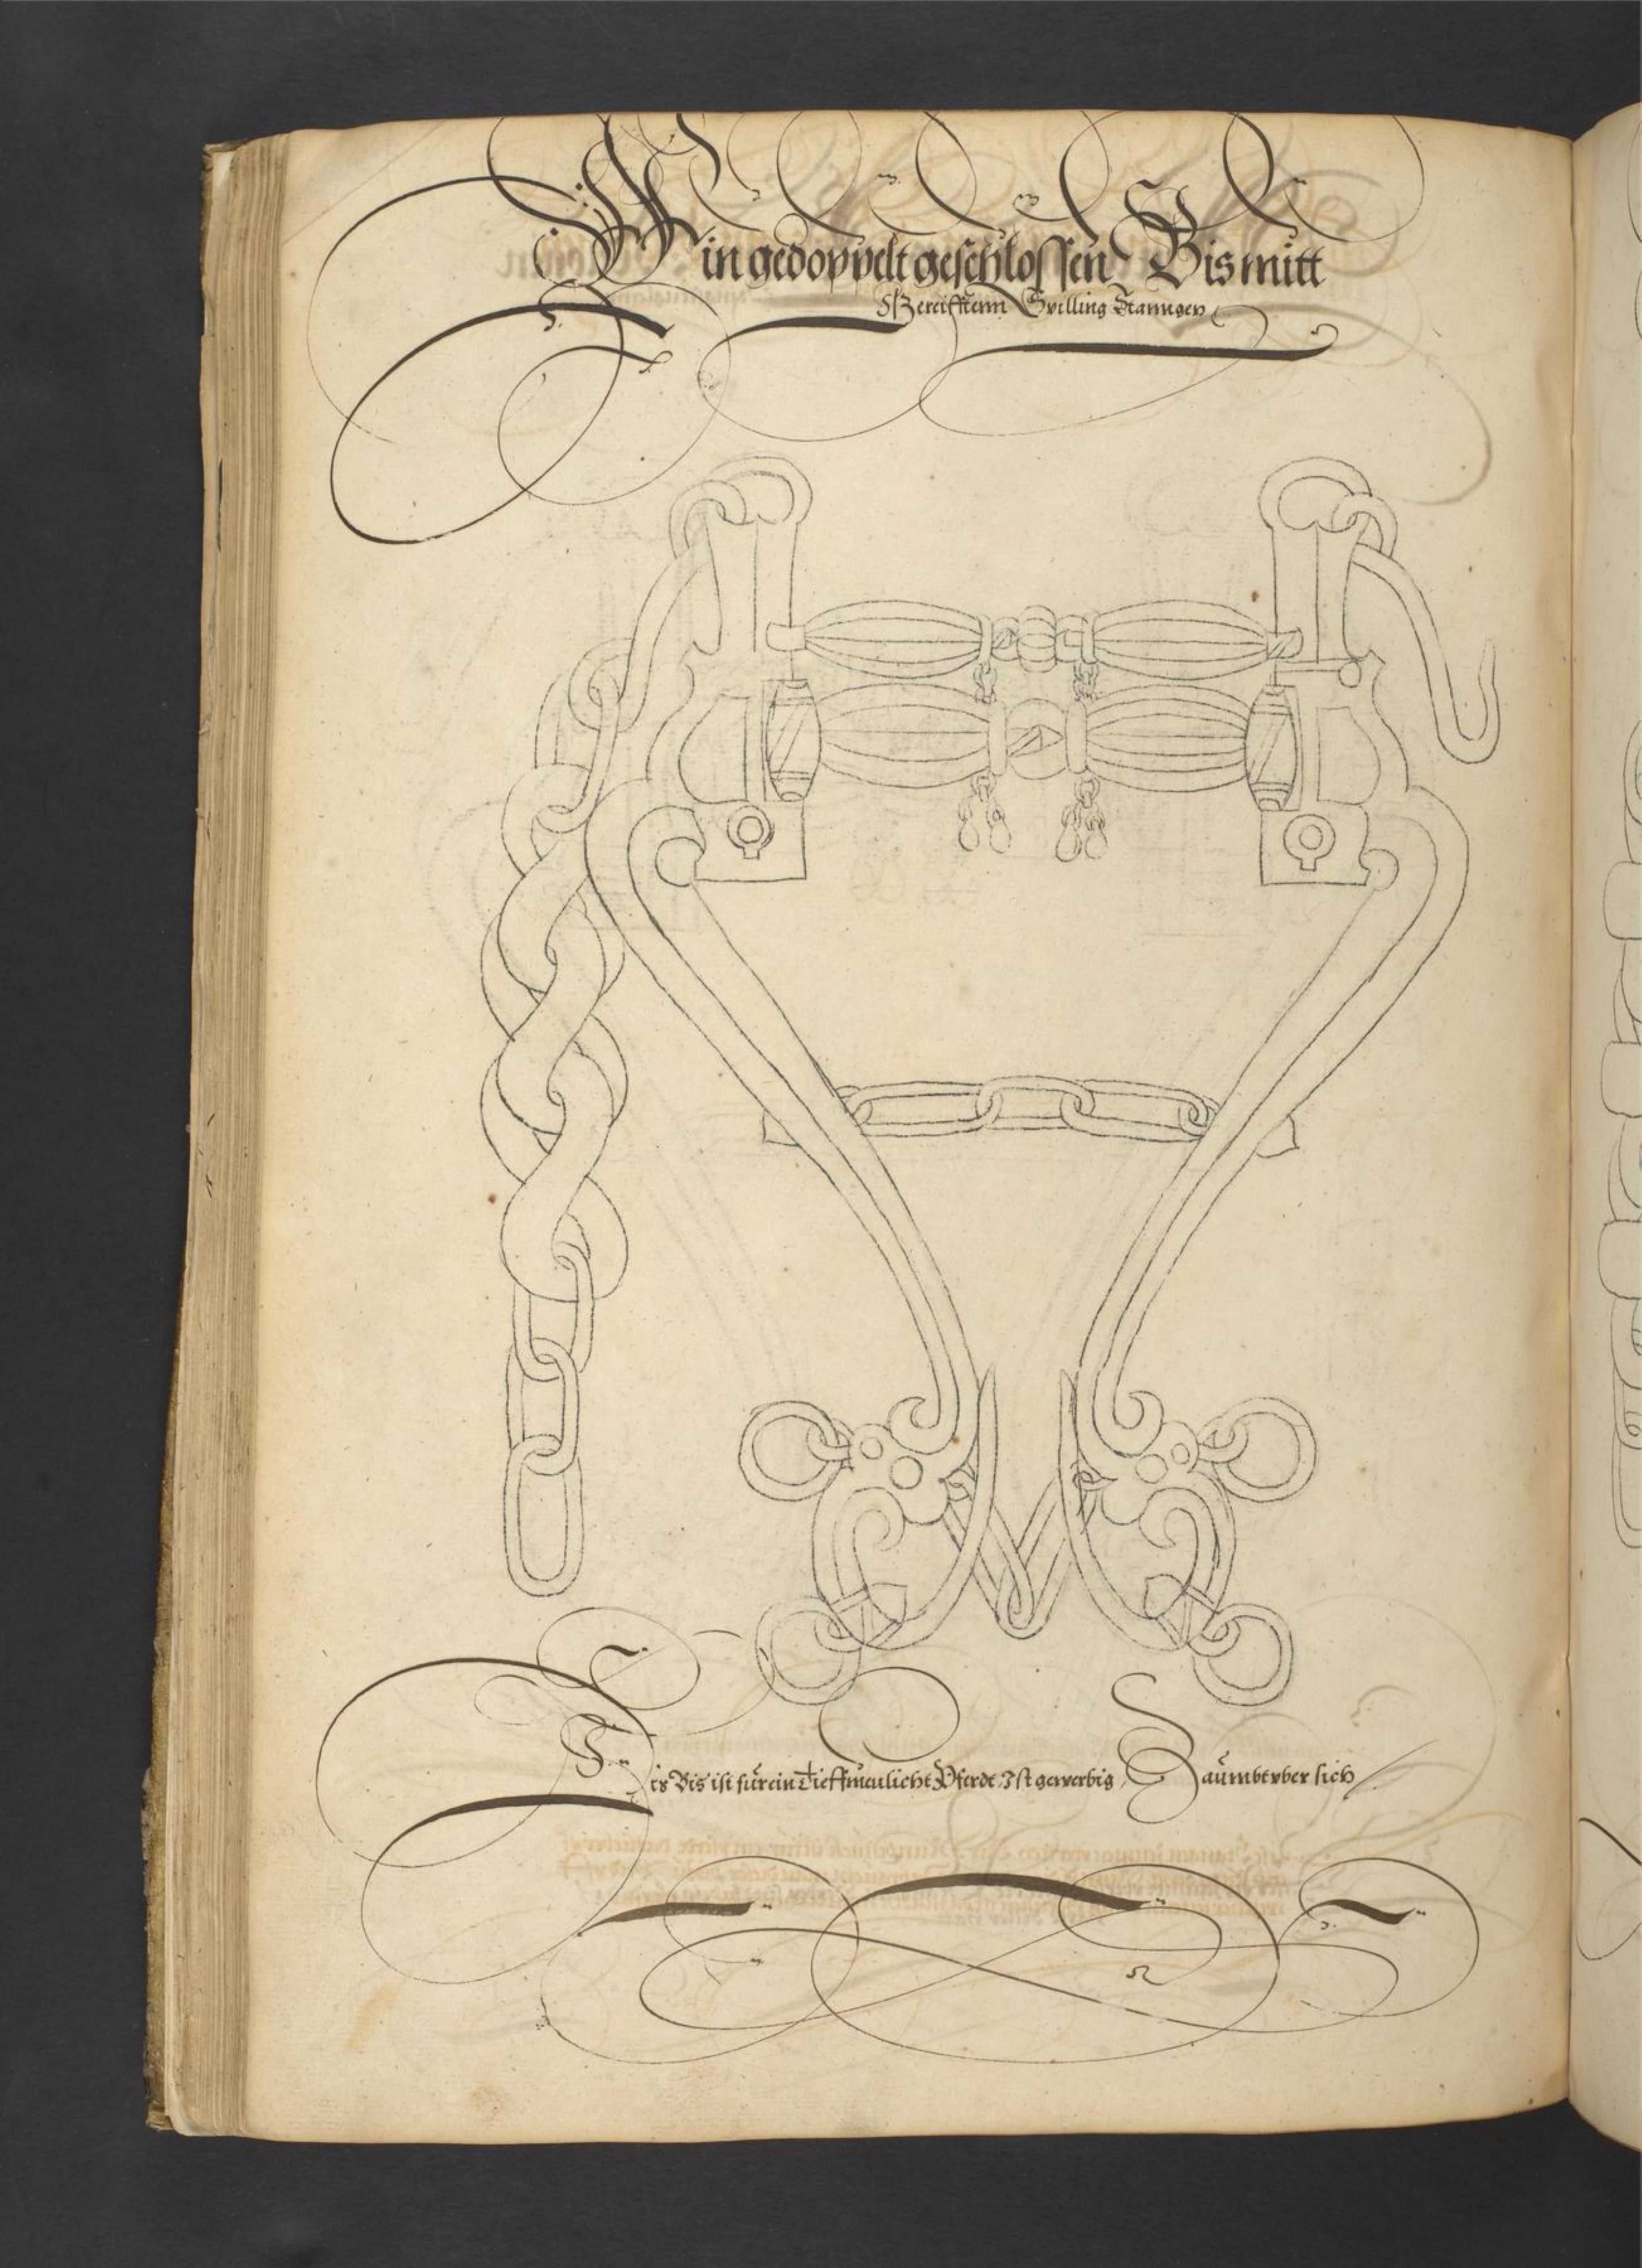 Ein gedoppelt geschlossen Bis mitt
Gereifftenn Spilling Stanngen
Dis Bis ist für ein Tieffmeulicht Pferdt Ist gewerbig Zäumbt vber sich